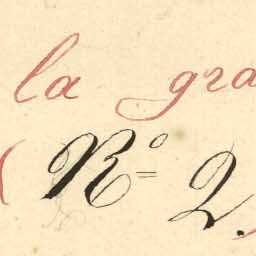 la gra
(Nº 2.